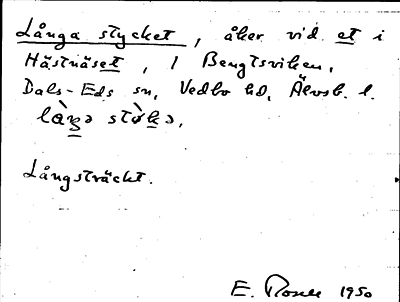 Långa stycket, åker vid et i
Hästnäset, i Bengtsviken,
Dals-Eds sn, Vedbo hd, Älvsb. l.
Långsträckt.
E. 1950